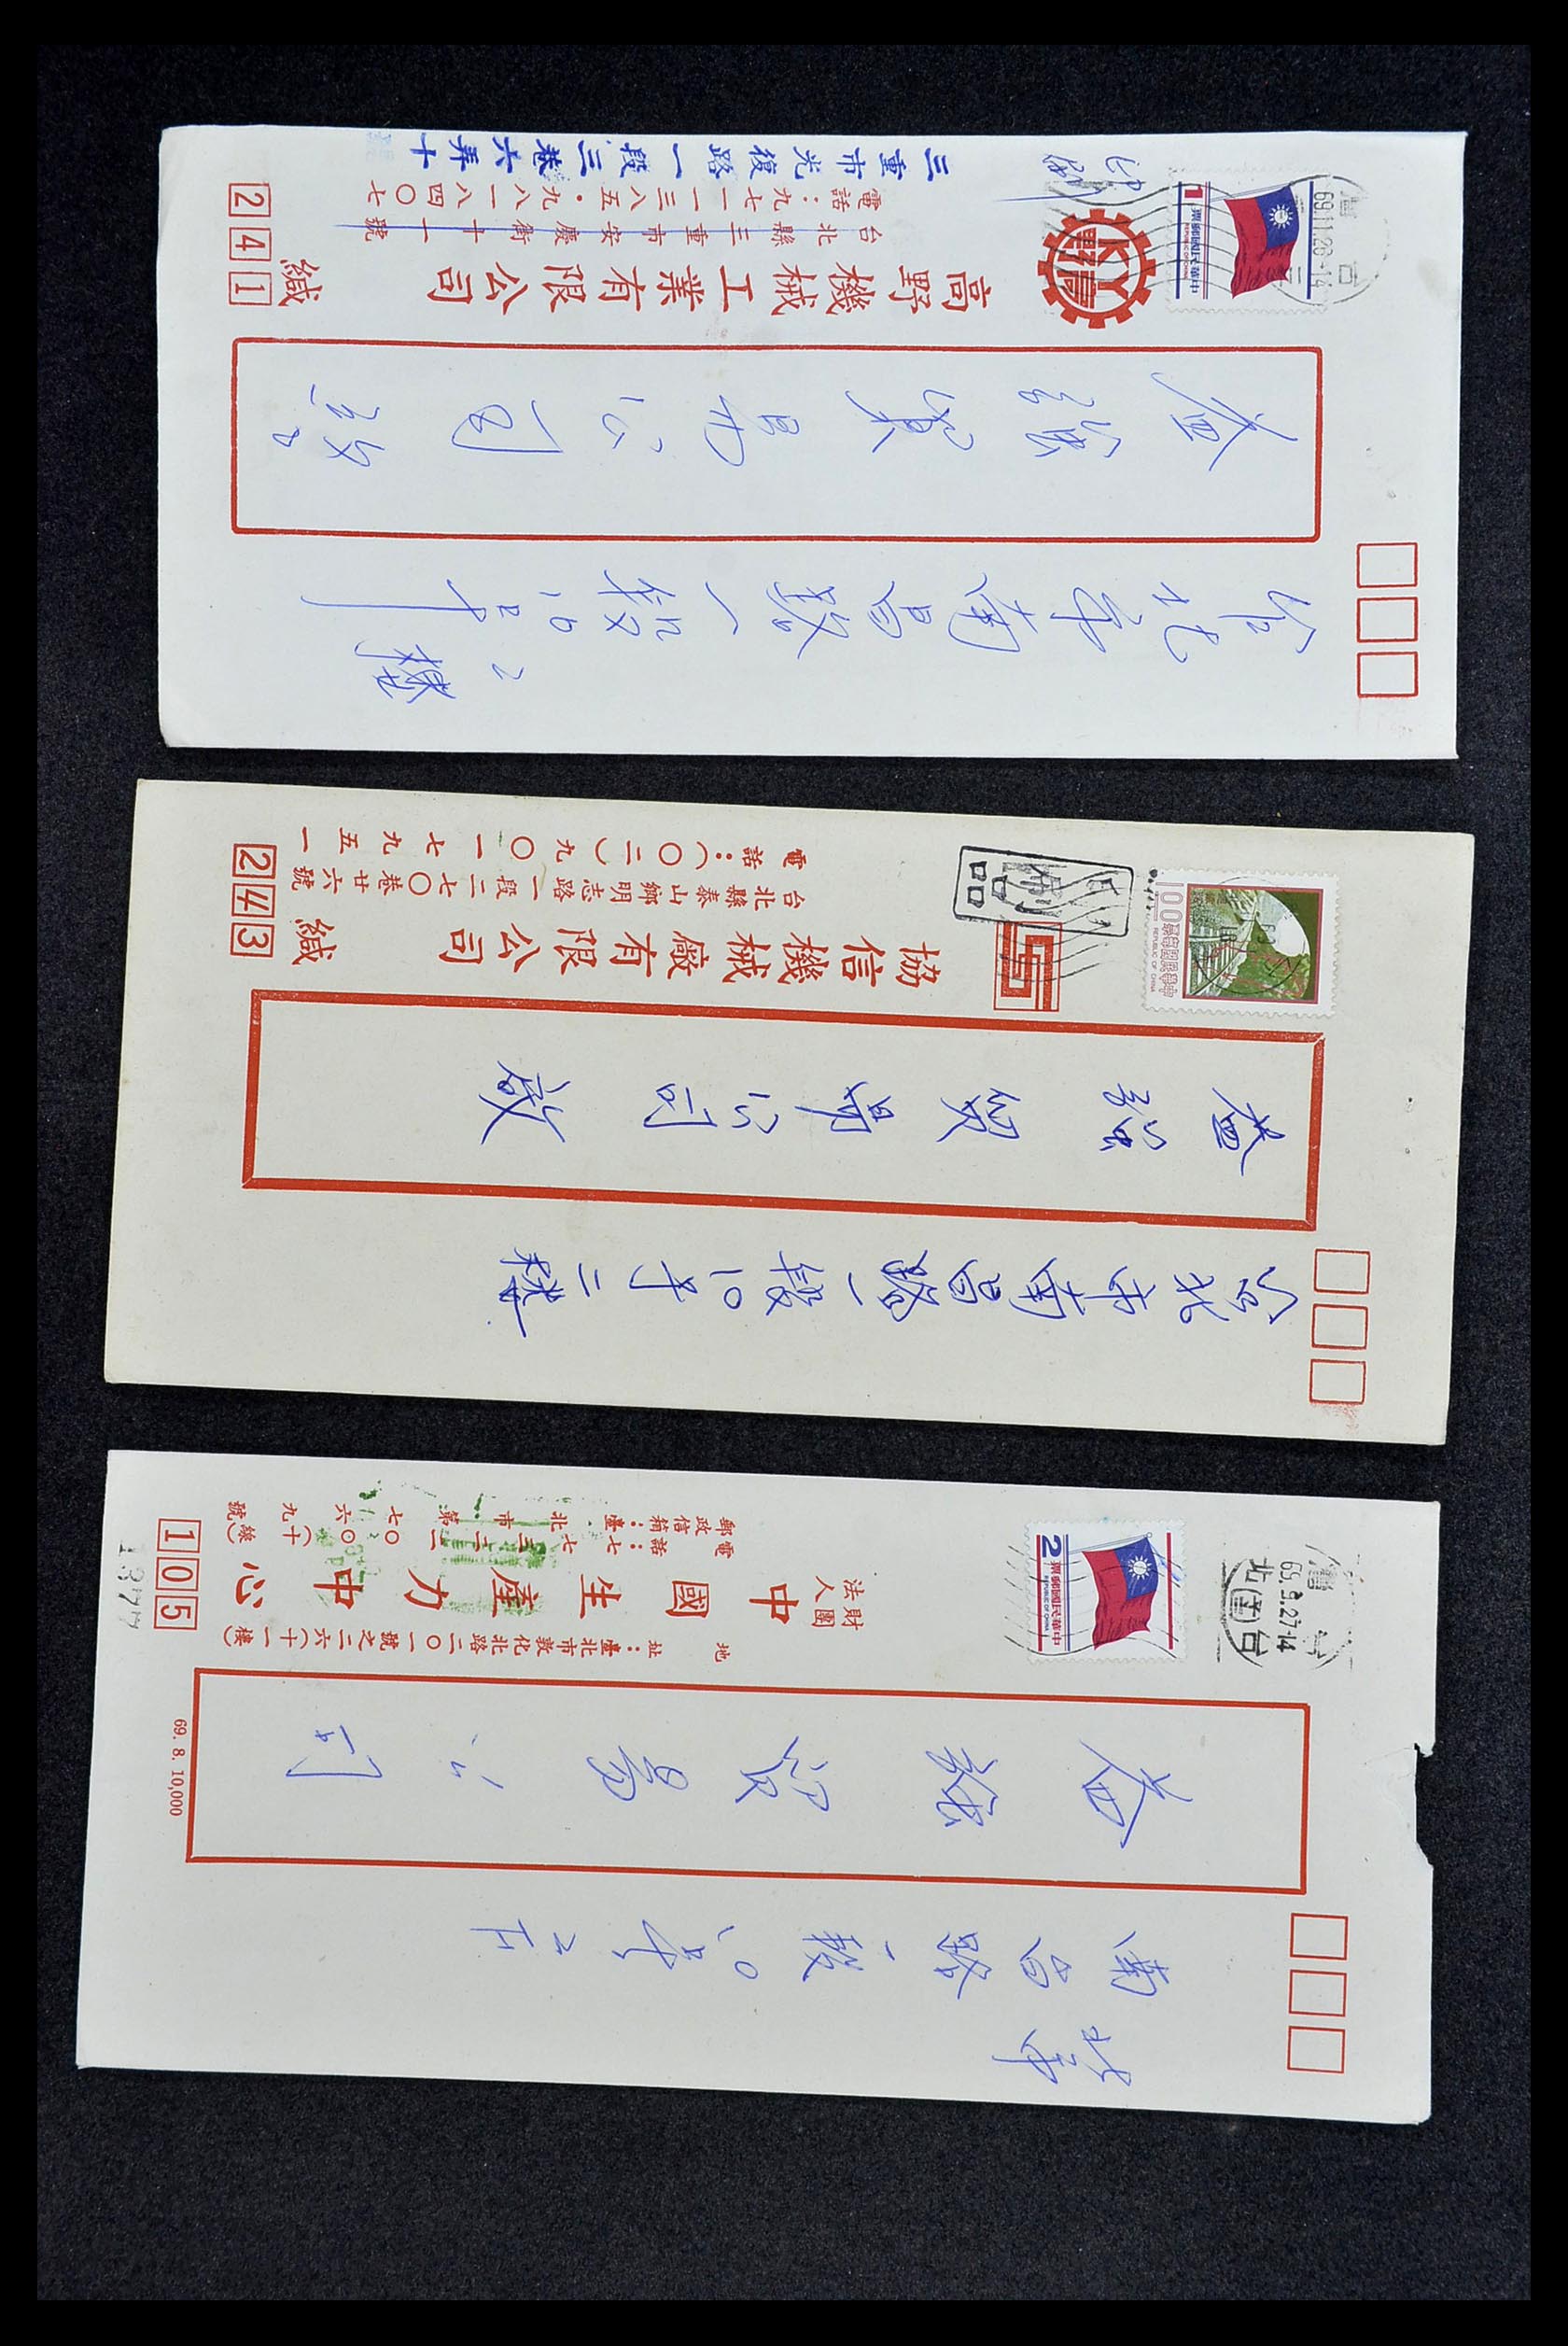 三重市光復路一段三巷六弄十
電話：九七一一三八五・九八一八四〇七
台北縣三重市安慶街十一號
高野機械工業有限公司 緘
241
KY
野高
中華民國郵票
REPUBLIC OF CHINA
1
69.11.26-14
貿易公司
台北市南昌路一段10号
二樓
電話：（〇二）九〇一七九五一
台北縣泰山鄉明志路一段二七〇巷廿六號
協信機械廠有限公司 緘
243
印刷品
中華民國郵票
REPUBLIC OF CHINA
100
貿易公司 啟
台北市南昌路一段10号二樓
郵政信箱：臺北市第
電話：七
財團法人 中國生產力中心
地址：臺北市敦化北路二〇一號之二六（十一樓）
105
1377
中華民國郵票
REPUBLIC OF CHINA
2
69.9.27-14
貿易公司
69. 8. 10,000
南昌路一段10号二F
北市